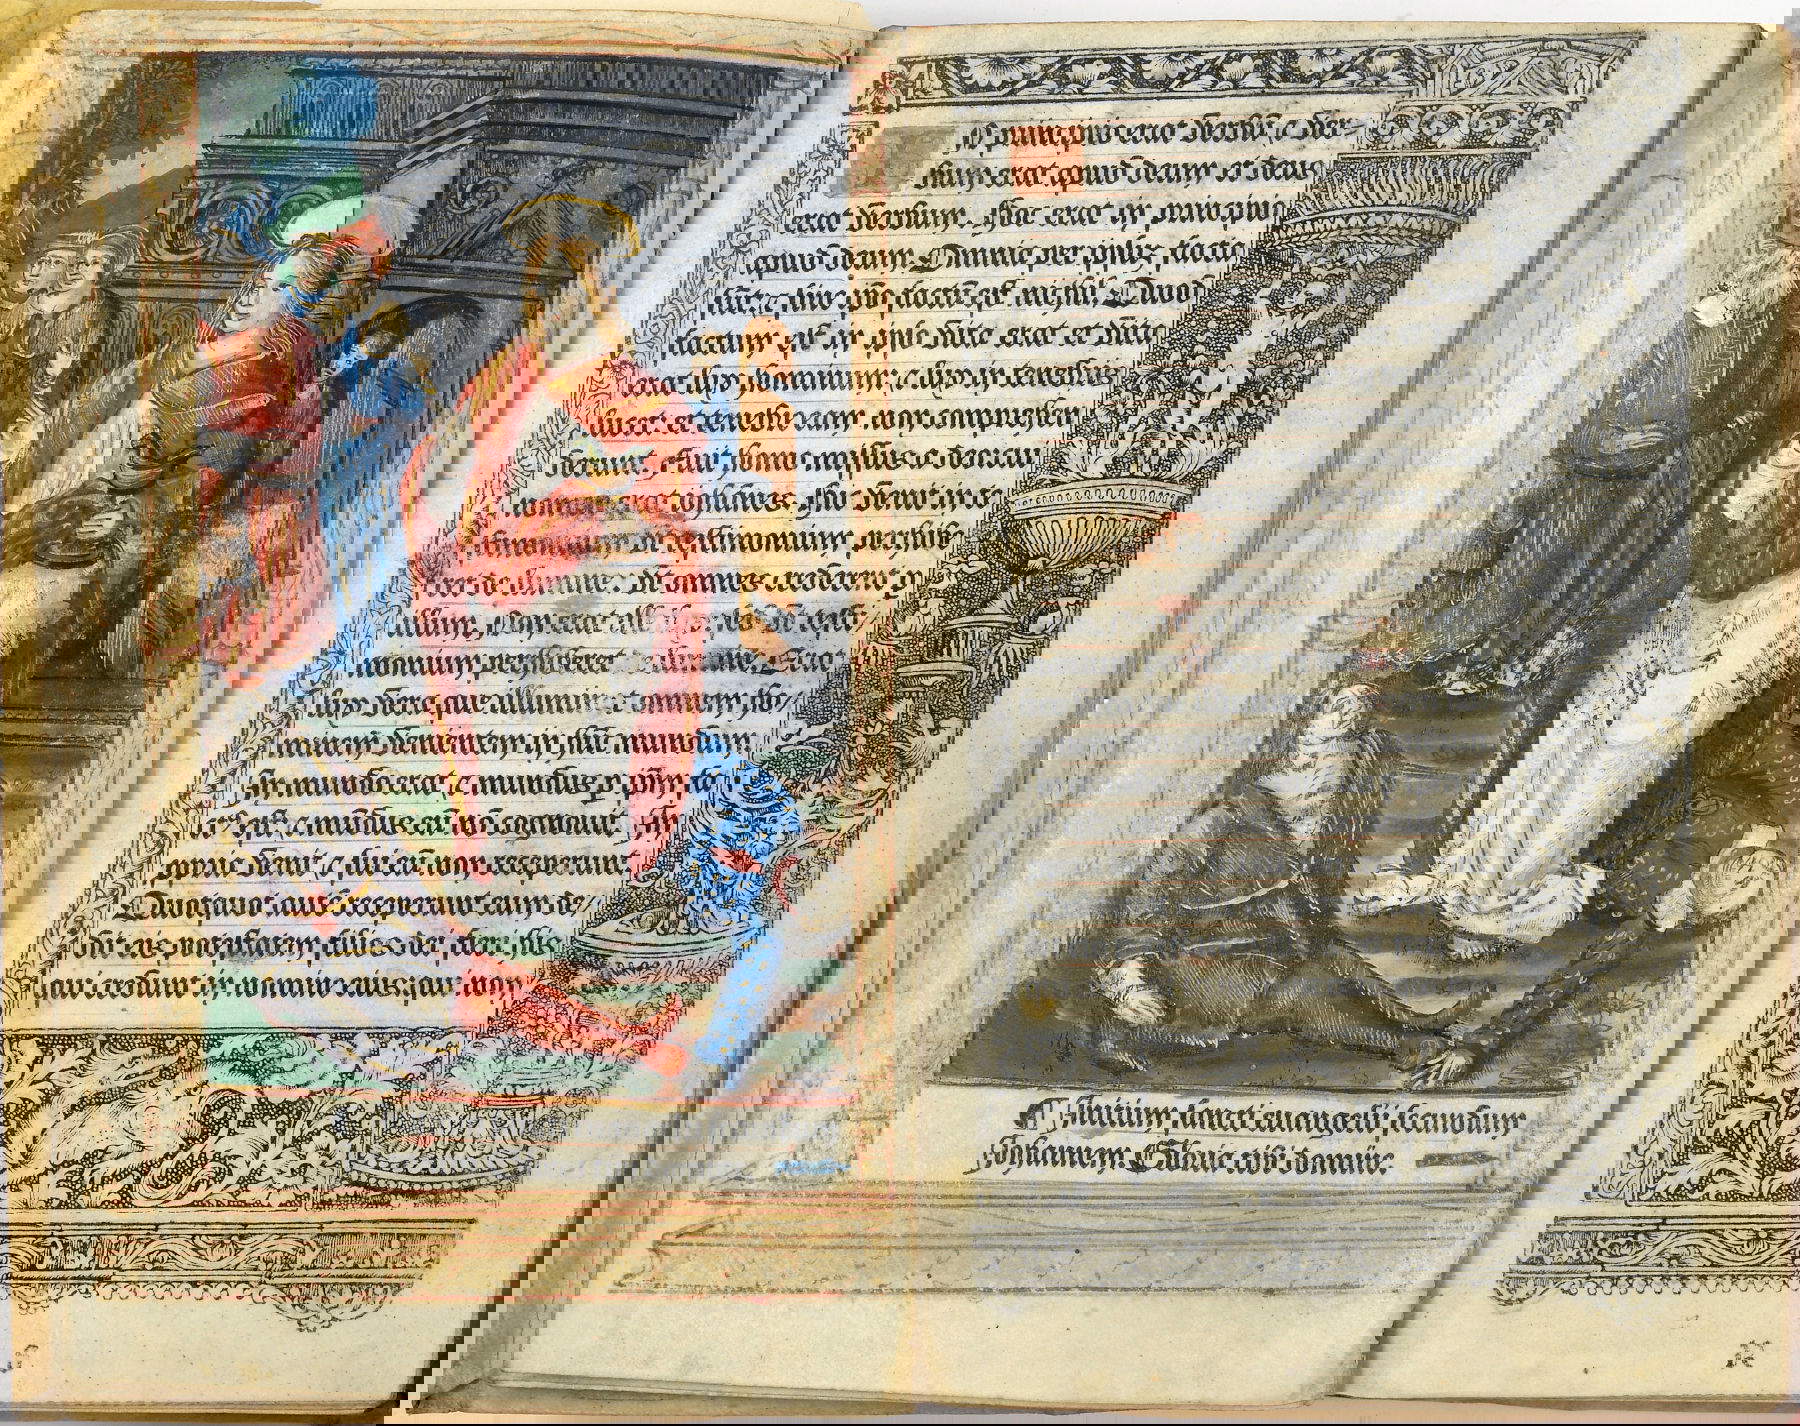 In principio erat verbū, & ver=
bum erat apud deum et deus
erat verbum. Hoc erat in principio
apud deum. Omnia per ipsuʒ facta
sūt: & sine ipso factū est nichil. Quod
factum est in ipso vita erat et vita
erat lux hominum: & lux in tenebris
lucet et tenebre eam non comprehen
derunt. Fuit homo missus a deo: cui
nomen erat iohānes. Hic venit in te
stimonium vt testimonium perhibe
ret de lumine: vt omnes crederent p̲
illum. Non erat ille lux: sed vt testi/
monium perhiberet de lumine. Erat
lux vera que illuminat omnem ho/
minem venientem in hūc mundum.
In mundo erat & mundus p̲ ip̄m fa
ctꝰ est: & mūdus eū nō cognouit. In
propria venit & sui eū non receperunt.
Quotquot autē receperunt eum de/
dit eis potestatem filios dei fieri: his
qui credunt in nomine eius: qui non
¶ Initium sancti euangelii secundum
Johannem. Gloria tibi domine.